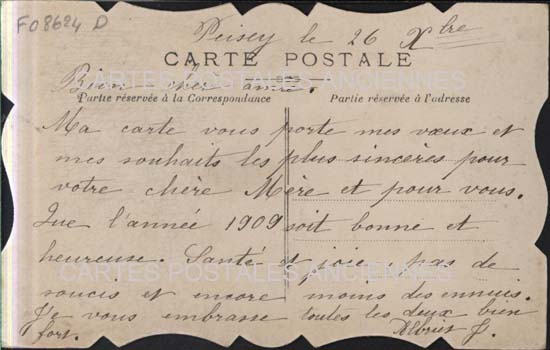 F08624 D
Peisey le 26 Xbre
CARTE POSTALE
Bien cher ami.
Partie réservée à la Correspondance
Partie réservée à l'adresse
Ma carte vous porte mes vœux et
mes souhaits les plus sincères pour
votre chère Mère et pour vous.
Que l'année 1909 soit bonne et
heureuse. Santé et joie, pas de
soucis et encore moins des ennuis.
Je vous embrasse toutes les deux bien
fort.
J.
CARTES POSTALES ANCIENNES
CARTES POSTALES ANCIENNES